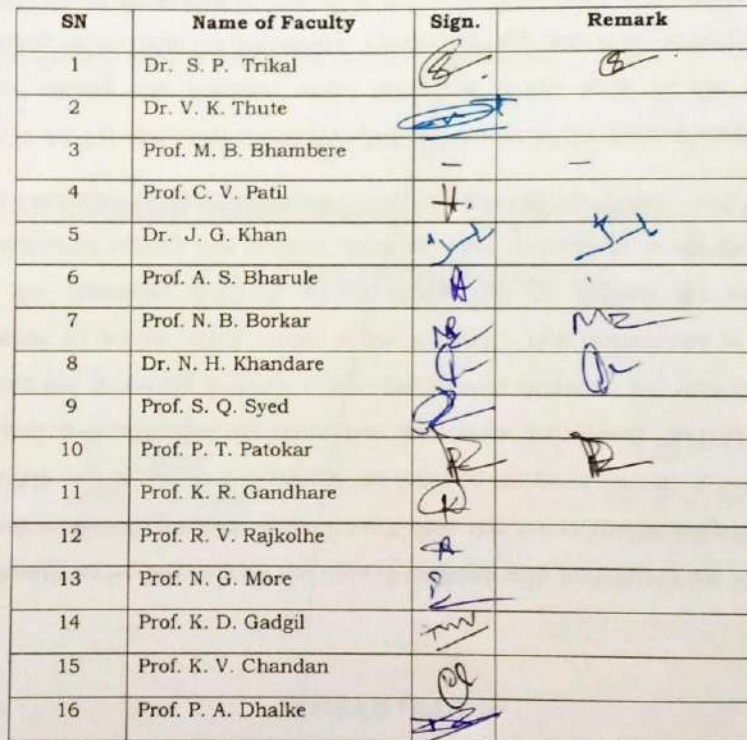 SN Name of Faculty Sign. Remark
1 Dr. S. P. Trikal
2 Dr. V. K. Thute
3 Prof. M. B. Bhambere – –
4 Prof. C. V. Patil
5 Dr. J. G. Khan
6 Prof. A. S. Bharule
7 Prof. N. B. Borkar
8 Dr. N. H. Khandare
9 Prof. S. Q. Syed
10 Prof. P. T. Patokar
11 Prof. K. R. Gandhare
12 Prof. R. V. Rajkolhe
13 Prof. N. G. More
14 Prof. K. D. Gadgil
15 Prof. K. V. Chandan
16 Prof. P. A. Dhalke